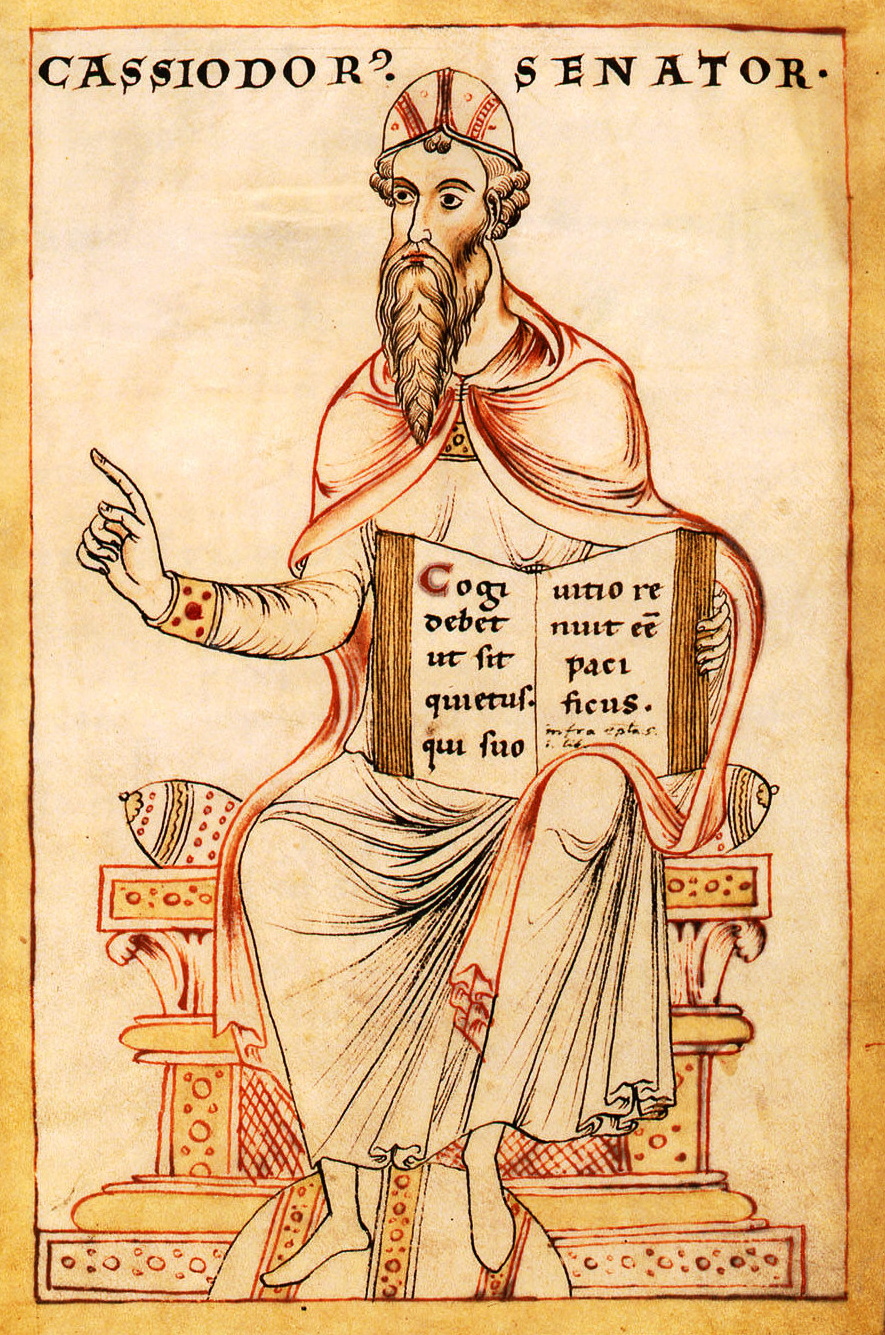 CASSIODORꝰ. SENATOR·
Cogi
debet
ut sit
quietus.
qui suo
uitio re
nuit eē
paci
ficus.
infra
i. lib